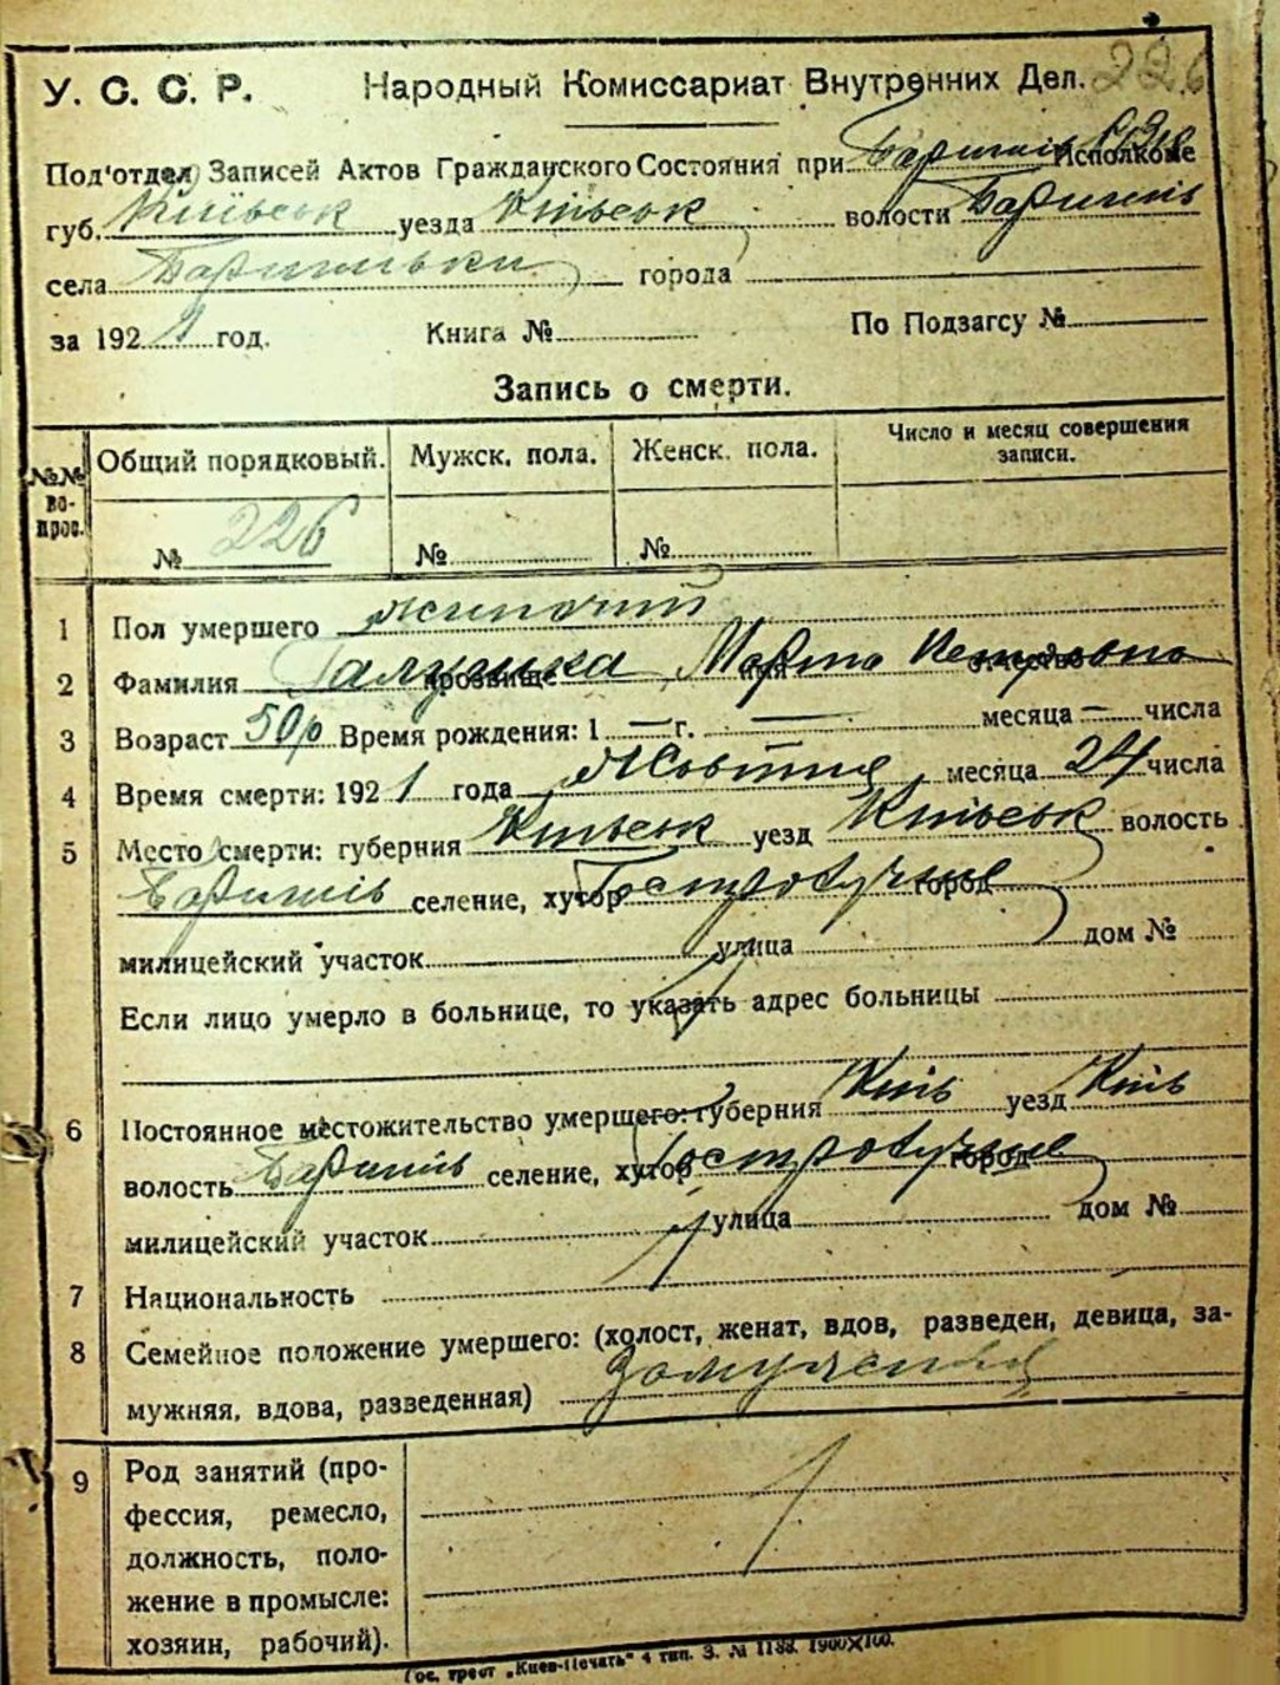 226
У. С. С. Р. Народный Комиссариат Внутренних Дел.
Под'отдел Записей Актов Гражданского Состояния при Исполкоме
губ. Київськ уезда Київськ волости Баришів
села Баришівки города
за 1921 год. Книга № По Подзагсу №
Запись о смерти.
№№ вопрос. Общий порядковый. Мужск. пола. Женск. пола. Число и месяц совершения записи.
№ 226 № №
1 Пол умершего жиночий
2 Фамилия Галушка прозвище Марта имя отчество
3 Возраст 50р Время рождения: 1 — г. — месяца — числа
4 Время смерти: 1921 года Жовтня месяца 24 числа
5 Место смерти: губерния Київськ уезд Київськ волость
Баришів селение, хутор Гостролучче город
милицейский участок улица дом №
Если лицо умерло в больнице, то указать адрес больницы
6 Постоянное местожительство умершего: губерния Київ уезд Київ
волость Баришів селение, хутор Гостролучче город
милицейский участок улица дом №
7 Национальность
8 Семейное положение умершего: (холост, женат, вдов, разведен, девица, за-
мужняя, вдова, разведенная)
9 Род занятий (про-
фессия, ремесло,
должность, поло-
жение в промысле:
хозяин, рабочий).
Гос. трест „Киев-Печать“ 4 тип. З. № 1188. 1900×100.